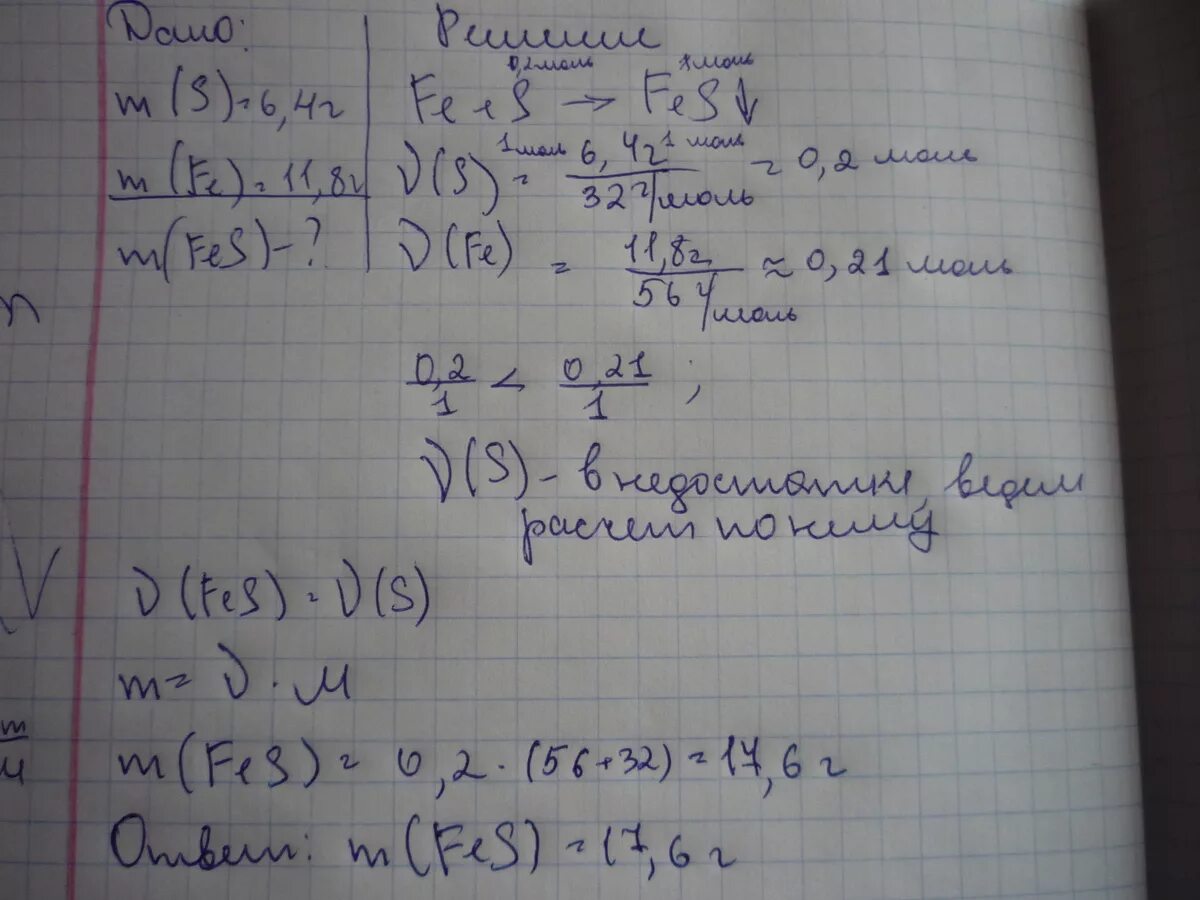 Дано:
m(S)=6,4г
m(Fe)=11,8г
m(FeS)-?
Решение
0,2моль 1моль
Fe+S → FeS↓
1моль 1 моль
ν(S) = 6,4г / 32 г/моль = 0,2 моль
ν(Fe) = 11,8г / 56 г/моль ≈ 0,21 моль
0,2/1 < 0,21/1 ;
ν(S) - в недостатке, ведем
расчет по нему
ν(FeS) = ν(S)
m = ν · M
m(FeS) = 0,2 · (56+32) = 17,6 г
Ответ: m(FeS) = 17,6 г
n
m
M